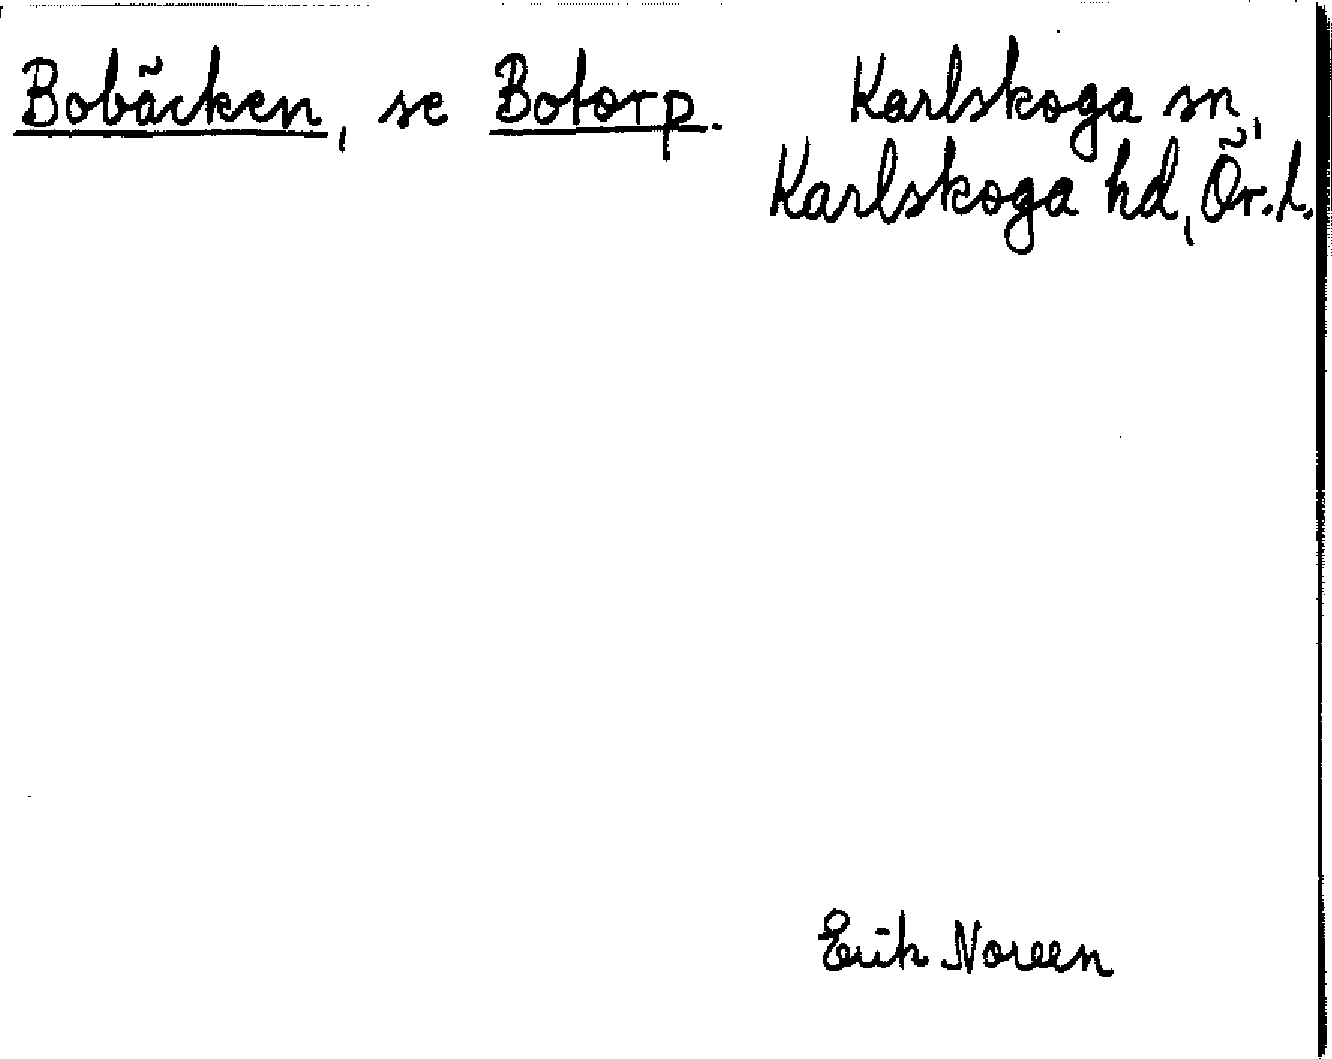 Bobäcken, se Botorp. Karlskoga sn,
Karlskoga hd, Ör. l.
Erik Noreen